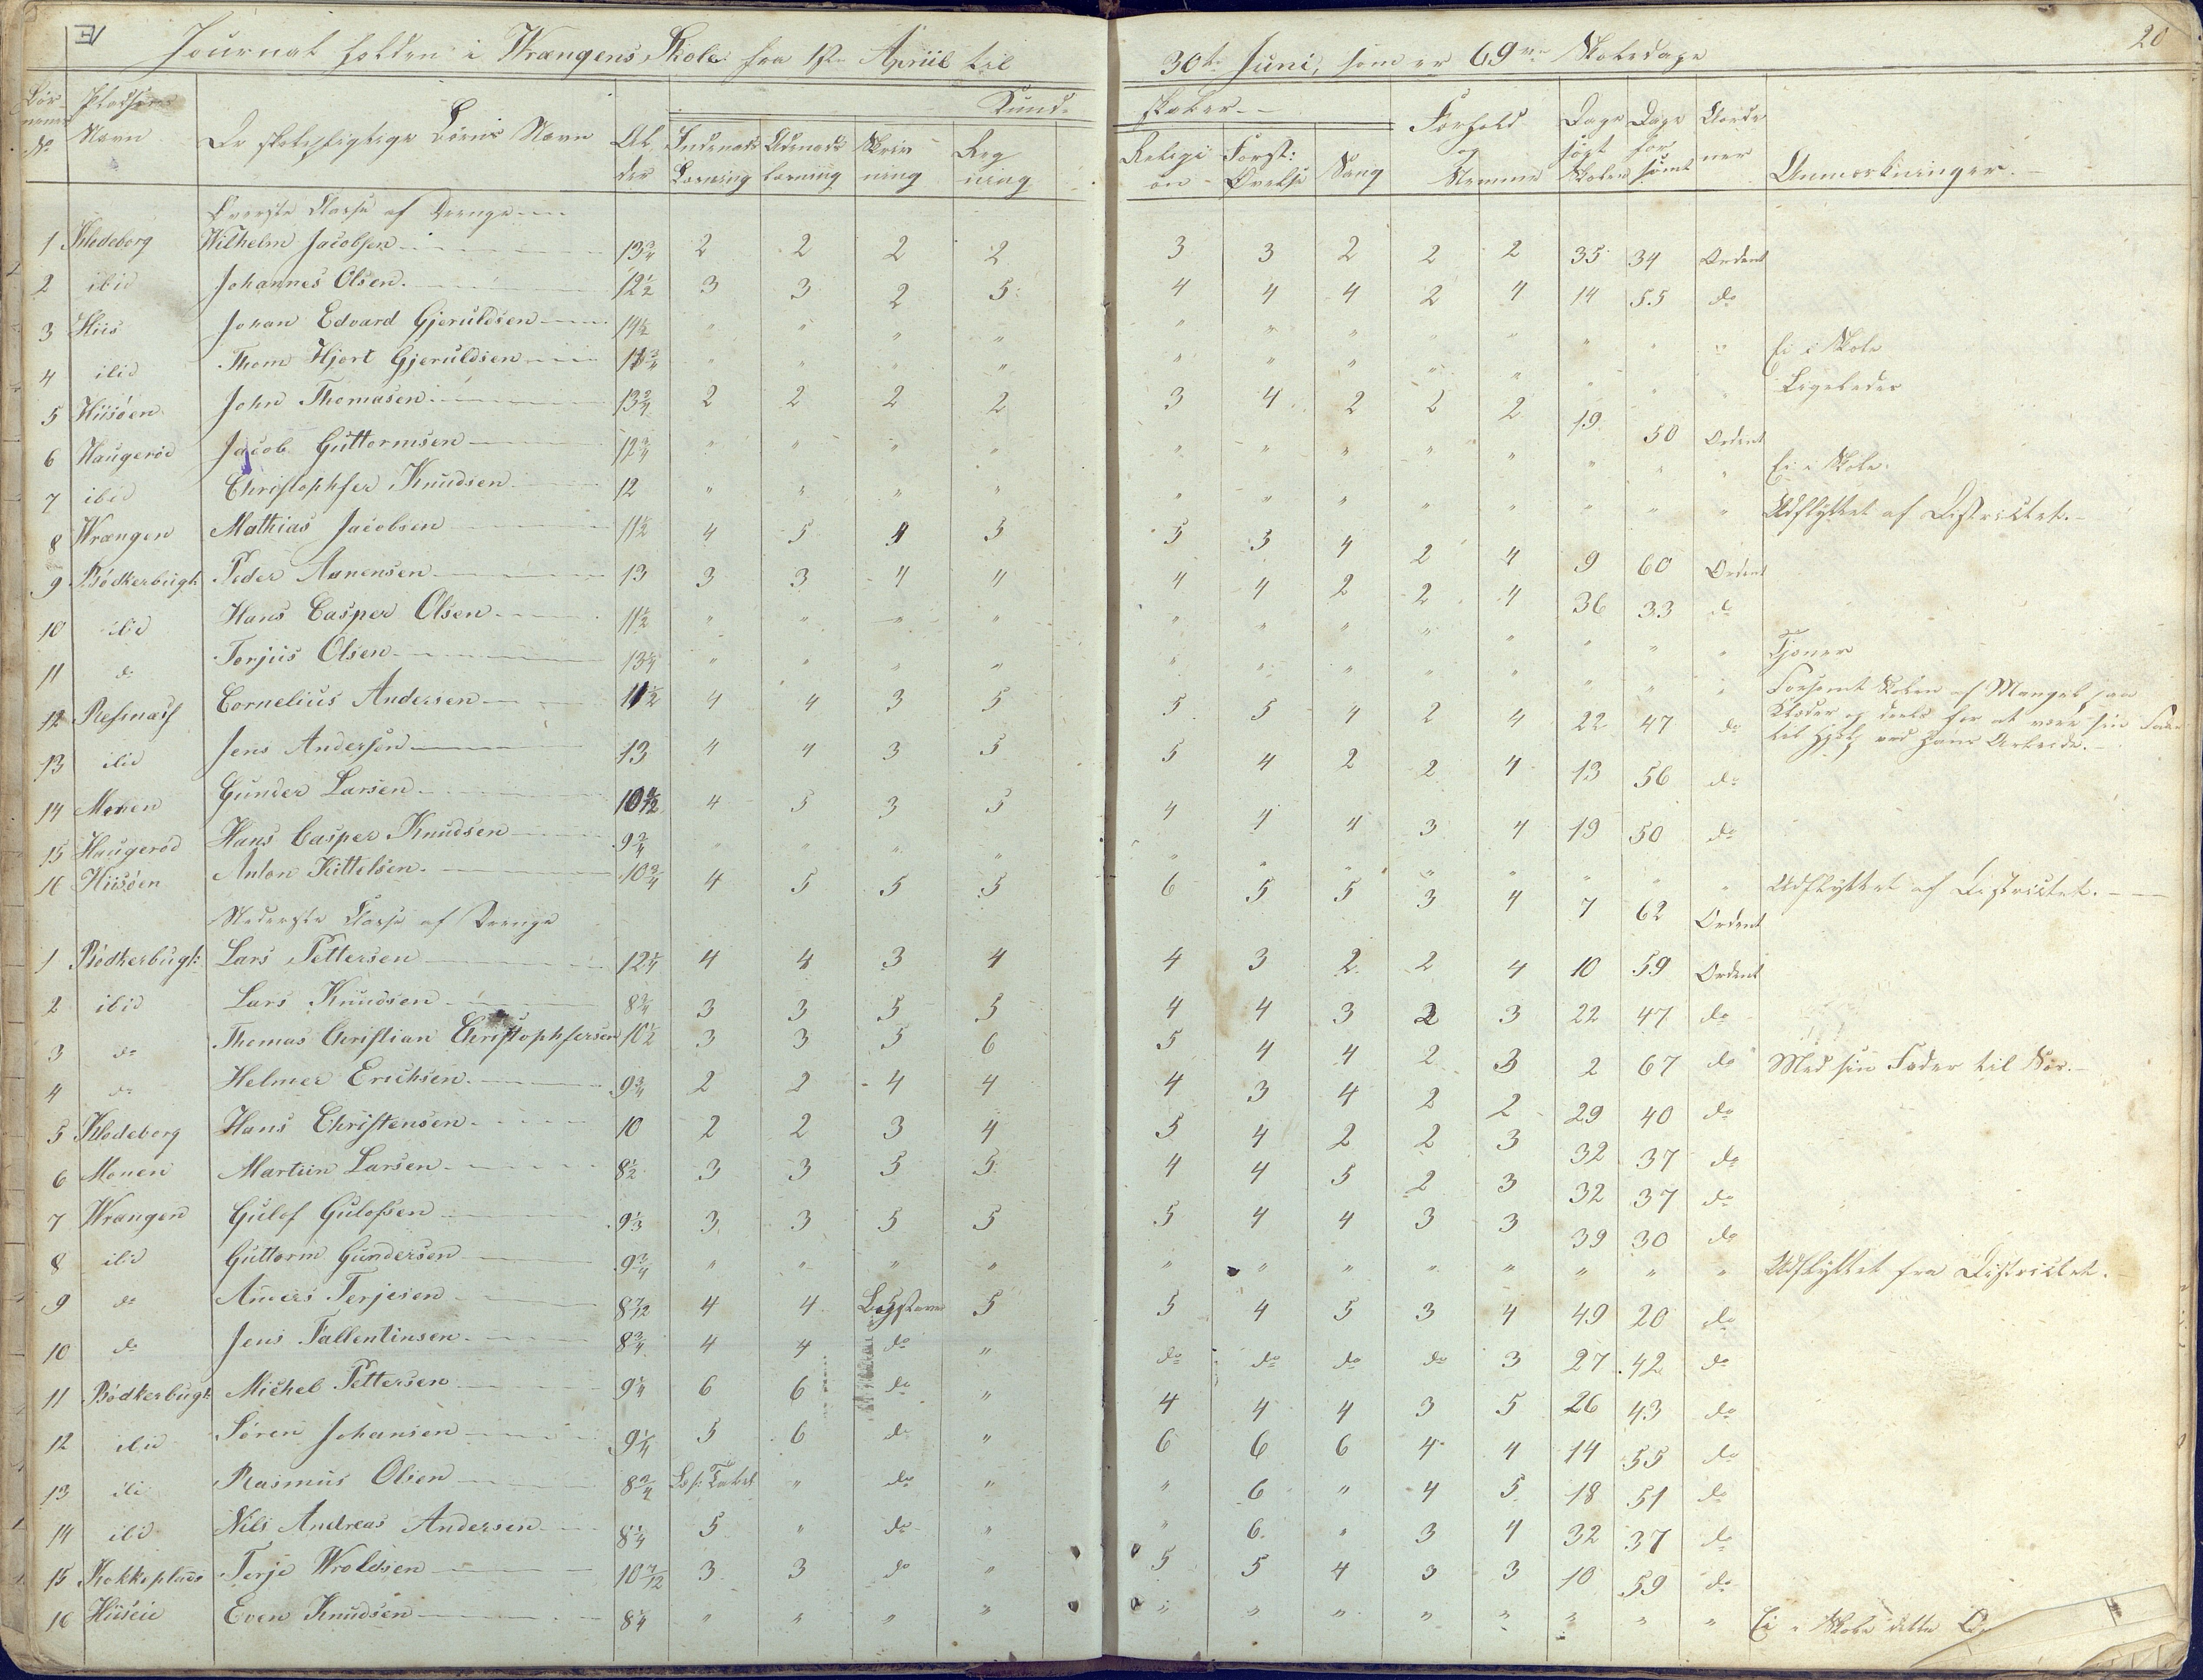 Journal holden i Wrængens Skole fra 1ste Apriil til 30te Juni, som er 69 Skoledage
20
Børnenes No
Pladsens Navn
De skolepligtige Børns Navn
Alder
Kundskaber
Indenads Læsning
Udenads Læsning
Skrivning
Regning
Religion
Forst: Øvelse
Sang
Forhold og Nemme
Dage søgt Skolen
Dage forsømt
Anmærkninger.
Øverste Classe af Drenge
1 Klodeborg Wilhelm Jacobsen 13 3/4 2 2 2 2 3 3 2 2 2 35 34 Ordent
2 ibid Johannes Olsen. 12 1/2 3 3 2 5 4 4 4 2 4 14 55 do
3 Hiis Johan Edvard Gjeruldsen 14 1/2 " " " " " " " " " " " " Ei i Skole
4 ibid Thom Hjort Gjeruldsen 11 3/4 " " " " " " " " " " " " Ligeledes
5 Hiisöen John Thomasen 13 3/4 2 2 2 2 3 4 2 2 2 19 50 Ordent
6 Haugeröd Jacob Guttormsen 12 3/4 " " " " " " " " " " " " Ei i Skole
7 ibid Christophfer Knudsen 12 " " " " " " " " " " " " Udflyttet af Districtet.
8 Wrængen Mathias Jacobsen 11 1/2 4 5 4 5 5 3 4 2 4 9 60 Ordent
9 Bödkerbugt: Peder Aanensen 13 3 3 4 4 4 4 2 2 4 36 33 do
10 ibid Hans Casper Olsen 11 1/2 " " " " " " " " " " " " Tjener
11 do Terjus Olsen 13 1/4 " " " " " " " " " " " "
12 Resnæs Cornelius Andersen 11 1/2 4 4 3 5 5 5 4 2 4 22 47 do Forsømt Skolen af Mangel paa Klæder og deels for at være sin Fader til Hjelp ved hans Arbeide.
13 ibid Jens Andersen 13 4 4 3 5 5 4 2 2 4 13 56 do
14 Moen Gunder Larsen 4 5 3 5 4 4 4 3 4 19 50 do
15 Haugeröd Hans Casper Knudsen 9 3/4 " " " " " " " " " " " " Udflyttet af Districtet.
16 Hiisöen Anton Kittelsen. 10 3/4 4 5 5 5 6 5 5 3 4 7 62 Ordent
Nederste Classe af Drenge
1 Bödkerbugt: Lars Pettersen 12 1/4 4 4 3 4 4 3 2 2 4 10 59 Ordent
2 ibid Lars Knudsen 8 3/4 3 3 5 5 4 4 3 2 3 22 47 do
3 do Thomas Christian Christophfersen 10 1/2 3 3 5 6 5 4 4 2 3 2 67 do Med sin Fader til Søes.
4 do Helmer Erichsen. 9 3/4 2 2 4 4 4 3 4 2 2 29 40 do
5 Klodeborg Hans Christensen 10 2 2 3 4 5 4 2 2 3 32 37 do
6 Moen Martiin Larsen 8 1/2 3 3 5 5 4 4 5 2 3 32 37 do
7 Wrængen Gulof Gulofsen 9 1/3 3 3 5 5 5 4 4 3 3 39 30 do
8 ibid Guttorm Gundersen 9 3/4 " " " " " " " " " " " " Udflyttet fra Districtet.
9 do Anders Terjesen 8 7/12 4 4 Bogstaver 5 5 4 5 3 4 49 20 do
10 do Jens Fallentinsen 8 3/4 4 4 do " do do do do 3 27 42 do
11 Bödkerbugt: Michel Pettersen 9 1/4 6 6 do " 4 4 4 3 5 26 43 do
12 ibid Sören Johansen 9 1/4 5 6 do " 6 6 6 4 4 14 55 do
13 ibi Rasmus Olsen 8 3/4 " do " " 6 " 4 5 18 51 do
14 ibid Nils Andreas Andersen 8 1/4 5 " do " " 6 " 3 4 32 37 do
15 Kokkeplads Terje Wroldsen 10 7/12 3 3 do " 5 5 4 3 3 10 59 do
16 Even Knudsen 8 1/4 " " " " " " " " " " " " Ei i Skole dette